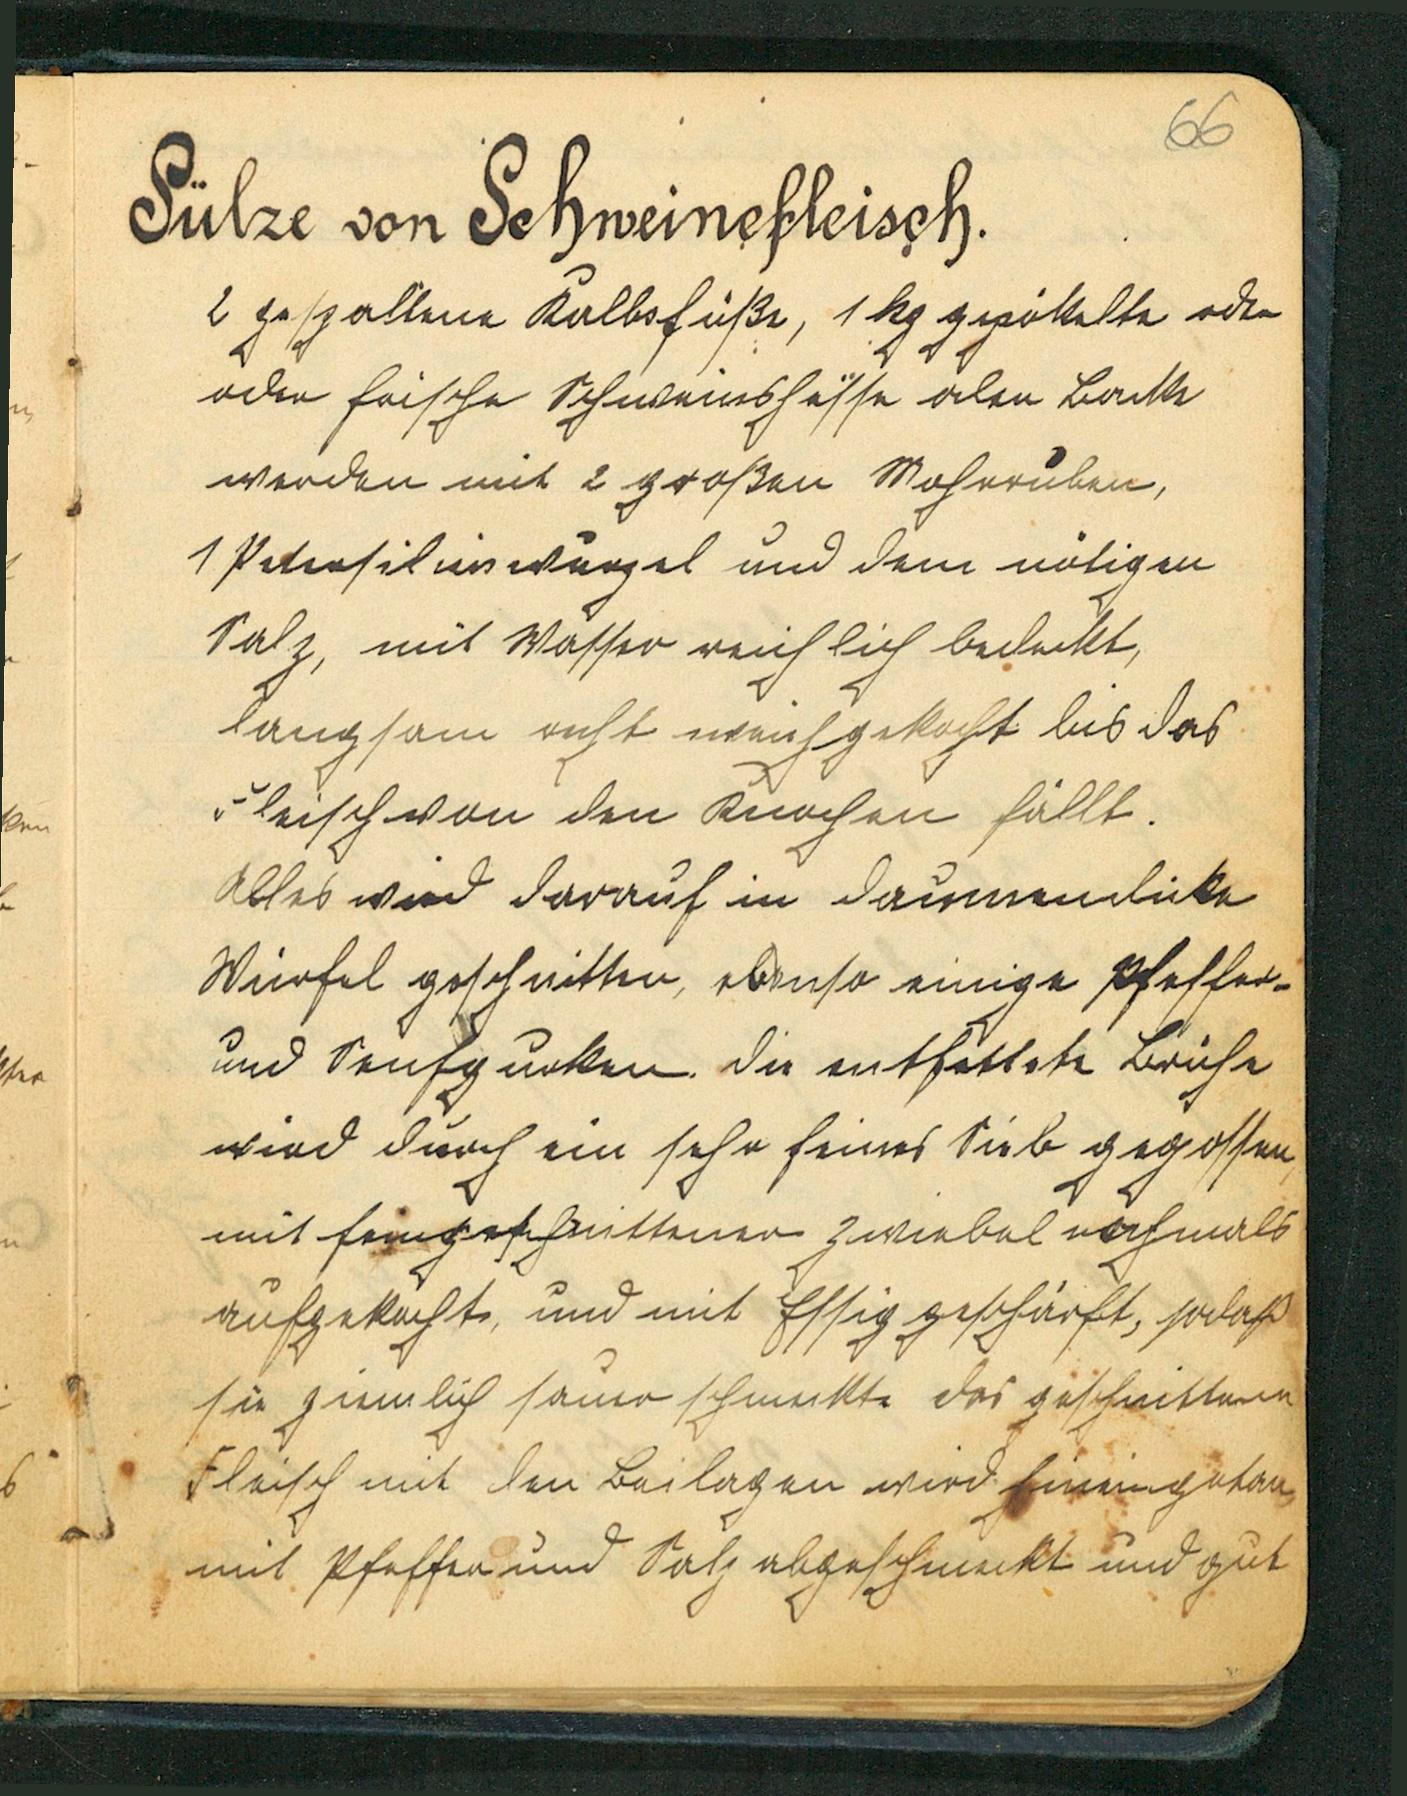 66
Sülze von Schweinefleisch.
2 gespaltene Kalbsfüße, 1 kg gepökelte oder
oder frische Schweinshässe oder Backe
werden mit 2 großen Mohrrüben,
1 Petersilienwurzel und dem nötigen
Salz, mit Wasser reichlich bedeckt,
langsam recht weich gekocht bis das
Fleisch von den Knochen fällt.
Alles wird darauf in daumendicke
Würfel geschnitten, ebenso einige Pfeffer-
und Senfgurken. Die entfettete Brühe
wird durch ein sehr feines Sieb gegossen,
mit feingeschnittener Zwiebel nochmals
aufgekocht, und mit Essig geschärft, sodaß
sie ziemlich sauer schmeckte das geschnittene
Fleisch mit den Beilagen wird hineingetan,
mit Pfeffer und Salz abgeschmeckt und gut